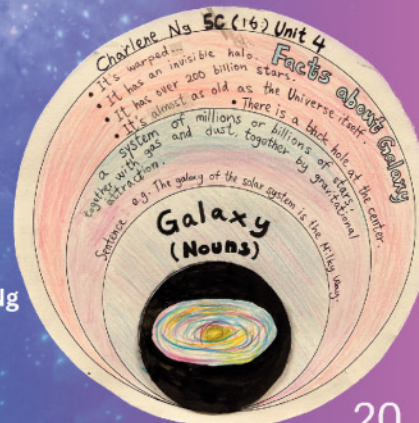 Charlene Ng 5C (16) Unit 4
Facts about Galaxy
• It's warped...
• It has an invisible halo.
• It has over 200 billion stars.
• It's almost as old as the Universe itself.
• There is a black hole at the center.
a system of millions or billions of stars,
together with gas and dust, together by gravitational
attraction.
Sentence: e.g. The galaxy of the solar system is the Milky Way.
Galaxy
(Nouns)
Ng
20